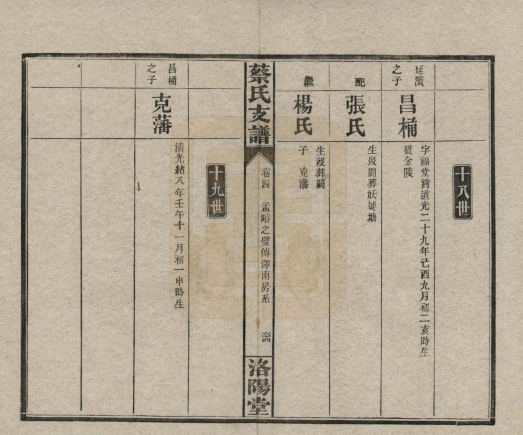 十八世
廷瀇之子
昌桶
字福堂清道光二十九年己酉九月初二亥時生
從金陵
配
張氏
生歿闕葬妖婆塘
繼
楊氏
生歿葬闕
子 克藩
蔡氏支譜
卷四 孟暘之璧傳澤南房系
洛陽堂
十九世
昌桶之子
克藩
清光緒八年壬午十一月初一申時生